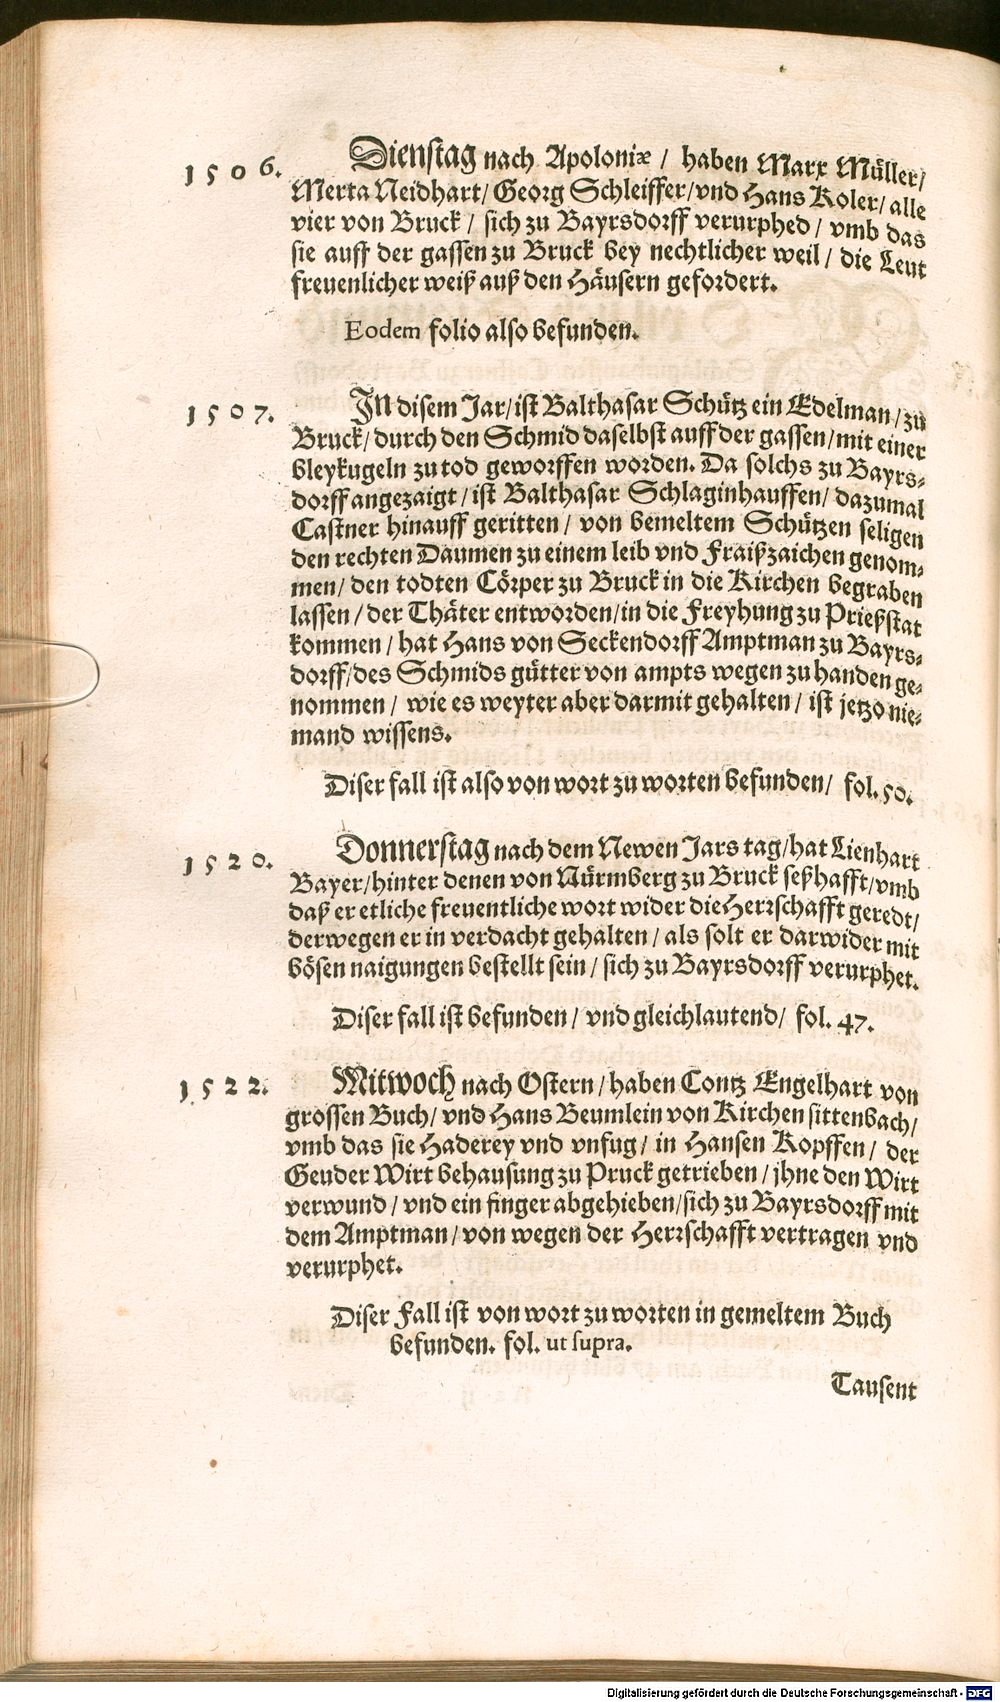 1506. Dienstag nach Apoloniæ / haben Marx Müller /
Merta Neidhart / Georg Schleiffer / vnd Hans Koler / alle
vier von Bruck / sich zu Bayrsdorff verurphed / vmb das
sie auff der gassen zu Bruck bey nechtlicher weil / die Leut
freuenlicher weiß auß den Häusern gefordert.
Eodem folio also befunden.
1507. IN disem Jar / ist Balthasar Schütz ein Edelman / zu
Bruck / durch den Schmid daselbst auff der gassen / mit einer
bleykugeln zu tod geworffen worden. Da solchs zu Bayrs-
dorff angezaigt / ist Balthasar Schlaginhauffen / dazumal
Castner hinauff geritten / von bemeltem Schützen seligen
den rechten Daumen zu einem leib vnd Fraißzaichen genom-
men / den todten Cörper zu Bruck in die Kirchen begraben
lassen / der Thäter entworden / in die Freyhung zu Prießstat
kommen / hat Hans von Seckendorff Amptman zu Bayrs-
dorff / des Schmids gütter von ampts wegen zu handen ge-
nommen / wie es weyter aber darmit gehalten / ist jetzo nie-
mand wissens.
Diser fall ist also von wort zu worten befunden / fol. 50.
1520. Donnerstag nach dem Newen Jars tag / hat Lienhart
Bayer / hinter denen von Nürmberg zu Bruck seßhafft / vmb
daß er etliche freuentliche wort wider die Herrschafft geredt /
derwegen er in verdacht gehalten / als solt er darwider mit
bösen naigungen bestellt sein / sich zu Bayrsdorff verurphet.
Diser fall ist befunden / vnd gleichlautend / fol. 47.
1522. Mitwoch nach Ostern / haben Contz Engelhart von
grossen Buch / vnd Hans Beumlein von Kirchen sittenbach /
vmb das sie Haderey vnd vnfug / in Hansen Kopffen / der
Geuder Wirt behausung zu Pruck getrieben / jhne den Wirt
verwund / vnd ein finger abgehieben / sich zu Bayrsdorff mit
dem Amptman / von wegen der Herrschafft vertragen vnd
verurphet.
Diser Fall ist von wort zu worten in gemeltem Buch
befunden. fol. ut supra.
Tausent
Digitalisierung gefördert durch die Deutsche Forschungsgemeinschaft - DFG